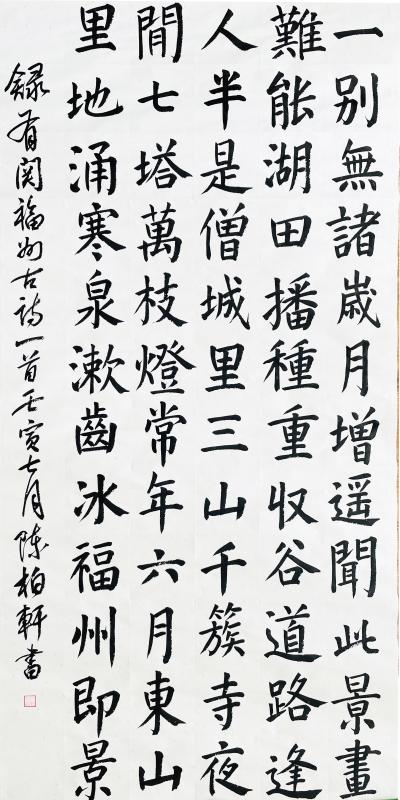 一别無諸歲月增遥聞此景畫
難能湖田播種重收谷道路逢
人半是僧城里三山千簇寺夜
間七塔萬枝燈常年六月東山
里地涌寒泉漱齒冰福州即景
録有関福州古詩一首壬寅七月陈柏軒書